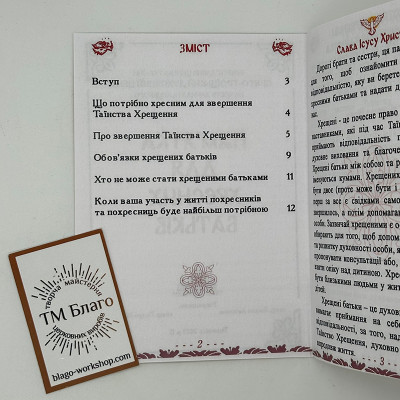 ЗМІСТ
Вступ 3
Що потрібно хресним для звершення
Таїнства Хрещення 4
Про звершення Таїнства Хрещення 5
Обов'язки хрещених батьків 9
Хто не може стати хрещеними батьками 11
Коли ваша участь у житті похресників
та похресниць буде найбільш потрібною 12
2
Слава Ісусу Хрис
Дорогі брати та сестри, ця па
для того, щоб ознайомити
відповідальністю, яку ви берете
хресними батьками та надати д
нас.
Хрещені - це почесне право
наставниками, які під час Таїн
приймають відповідальність п
духовне виховання та благоче
Хрещені батьки між собою та р
іменуються кумами. Хрещених
бути двоє (проте може бути і
Зазвичай хрещеними є о
обирають для того, щоб допомаг
та розвитку духовності особи, я
проведення консультації або,
опіки над дитиною. Хрещ
бути близькими людьми у жит
дітей.
Хрещені батьки – це духо
приймання на себе
відповідальності, за того, над
Таїнство Хрещення, духовно
народжує життя.
3
ворча майстерня
ТМ Благо
церковних виробів
blago-workshop.com